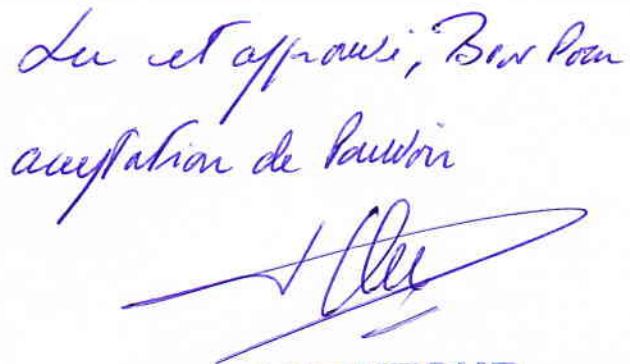 Lu et approuvé, Bon Pour
acceptation de Pouvoir